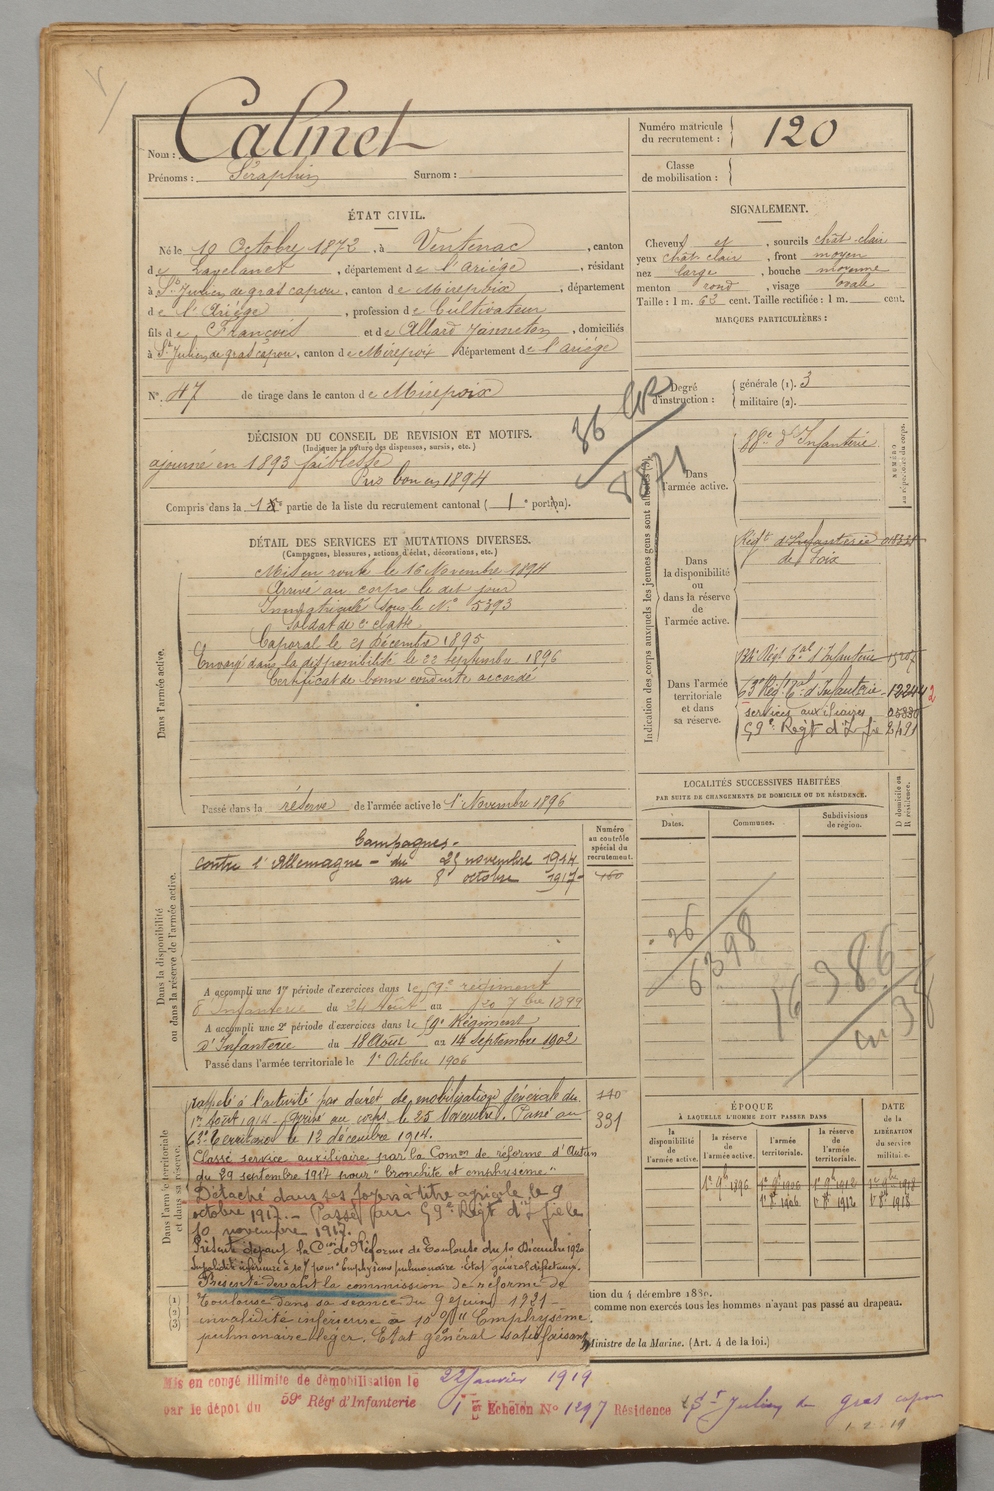 Nom : Calmet
Prénoms : Séraphin Surnom :
Numéro matricule du recrutement : 120
Classe de mobilisation :
ÉTAT CIVIL.
Né le 19 Octobre 1872, à Ventenac, canton
de Lavelanet, département de l'Ariége, résidant
à St Julien de gras capou, canton de Mirepoix, département
de l'Ariége, profession de Cultivateur
fils de François et de Allard Janneton, domiciliés
à St Julien de gras capou, canton de Mirepoix département de l'ariége
N°. 47 de tirage dans le canton de Mirepoix
SIGNALEMENT.
Cheveux et, sourcils chât-clair
yeux chât clair, front moyen
nez large, bouche moyenne
menton rond, visage ovale
Taille : 1 m. 63 cent. Taille rectifiée : 1 m. cent.
MARQUES PARTICULIÈRES :
Degré d'instruction : générale (1). 3
militaire (2).
DÉCISION DU CONSEIL DE REVISION ET MOTIFS.
(Indiquer la nature des dispenses, sursis, etc.)
ajourné en 1893 faiblesse
Pris bon en 1894
Compris dans la 1e partie de la liste du recrutement cantonal ( 1e portion).
DÉTAIL DES SERVICES ET MUTATIONS DIVERSES.
(Campagnes, blessures, actions d'éclat, décorations, etc.)
Dans l'armée active.
Mis en route le 16 Novembre 1894
Arrivé au corps le dit jour
Immatriculé sous le N° 5393
Soldat de 2e classe
Caporal le 21 décembre 1895
Envoyé dans la disponibilité le 22 septembre 1896
Certificat de bonne conduite accordé
Passé dans la réserve de l'armée active le 1er Novembre 1896
Indication des corps auxquels les jeunes gens sont affectés (3).
NUMÉRO au répertoire du corps.
36 CR
1871
Dans l'armée active.
88e d'Infanterie
Dans la disponibilité ou dans la réserve de l'armée active.
Régt d'Infanterie
de Foix
Dans l'armée territoriale et dans sa réserve.
134e Régt Tal d'Infanterie
63e Régt Tal d'Infanterie 12244
services auxiliaires
59e Régt d'Infie 2491
LOCALITÉS SUCCESSIVES HABITÉES
PAR SUITE DE CHANGEMENTS DE DOMICILE OU DE RÉSIDENCE.
Dates. Communes. Subdivisions de région. D domicile ou R résidence.
36
6398
16 386
Numéro au contrôle spécial du recrutement.
160
Dans la disponibilité ou dans la réserve de l'armée active.
Campagnes.
contre l'Allemagne - du 25 novembre 1914
au 8 octobre 1917
A accompli une 1re période d'exercices dans le 59e régiment
d'Infanterie du 24 Août au 20 7bre 1899
A accompli une 2e période d'exercices dans le 59e Régiment
d'Infanterie du 18 Août au 14 Septembre 1902
Passé dans l'armée territoriale le 1er Octobre 1906
Dans l'armée territoriale et dans sa réserve.
rappelé à l'activité par décret de mobilisation générale du
1er Août 1914. Arrivé au corps le 25 Novembre. Passé au
63e Territorial le 12 décembre 1914.
331
Classé service auxiliaire par la Comon de réforme d'Autun
du 29 septembre 1917 pour "bronchite et emphysème"
Détaché dans ses foyers à titre agricole le 9
octobre 1917. - Passé au 59e Régt d'Infie le
10 novembre 1917.
Présenté devant la Con de Réforme de Toulouse du 10 Décembre 1920
Invalidité inférieure à 10% pour Emphysème pulmonaire. Etat général défectueux.
Présenté devant la commission de réforme de
Toulouse dans sa séance du 9 juin 1921
invalidité inférieure à 10 % "Emphysème
pulmonaire léger. Etat général satisfaisant
ÉPOQUE
À LAQUELLE L'HOMME DOIT PASSER DANS
la disponibilité de l'armée active. la réserve de l'armée active. l'armée territoriale. la réserve de l'armée territoriale.
DATE de la LIBÉRATION du service militaire.
1er 9bre 1896
tion du 4 décembre 1889.
comme non exercés tous les hommes n'ayant pas passé au drapeau.
Ministre de la Marine. (Art. 4 de la loi.)
Mis en congé illimité de démobilisation le 22 Janvier 1919
par le dépôt du 59e Rég' d'Infanterie 1er Echelon N° 1297 Résidence St Julien de gras capou